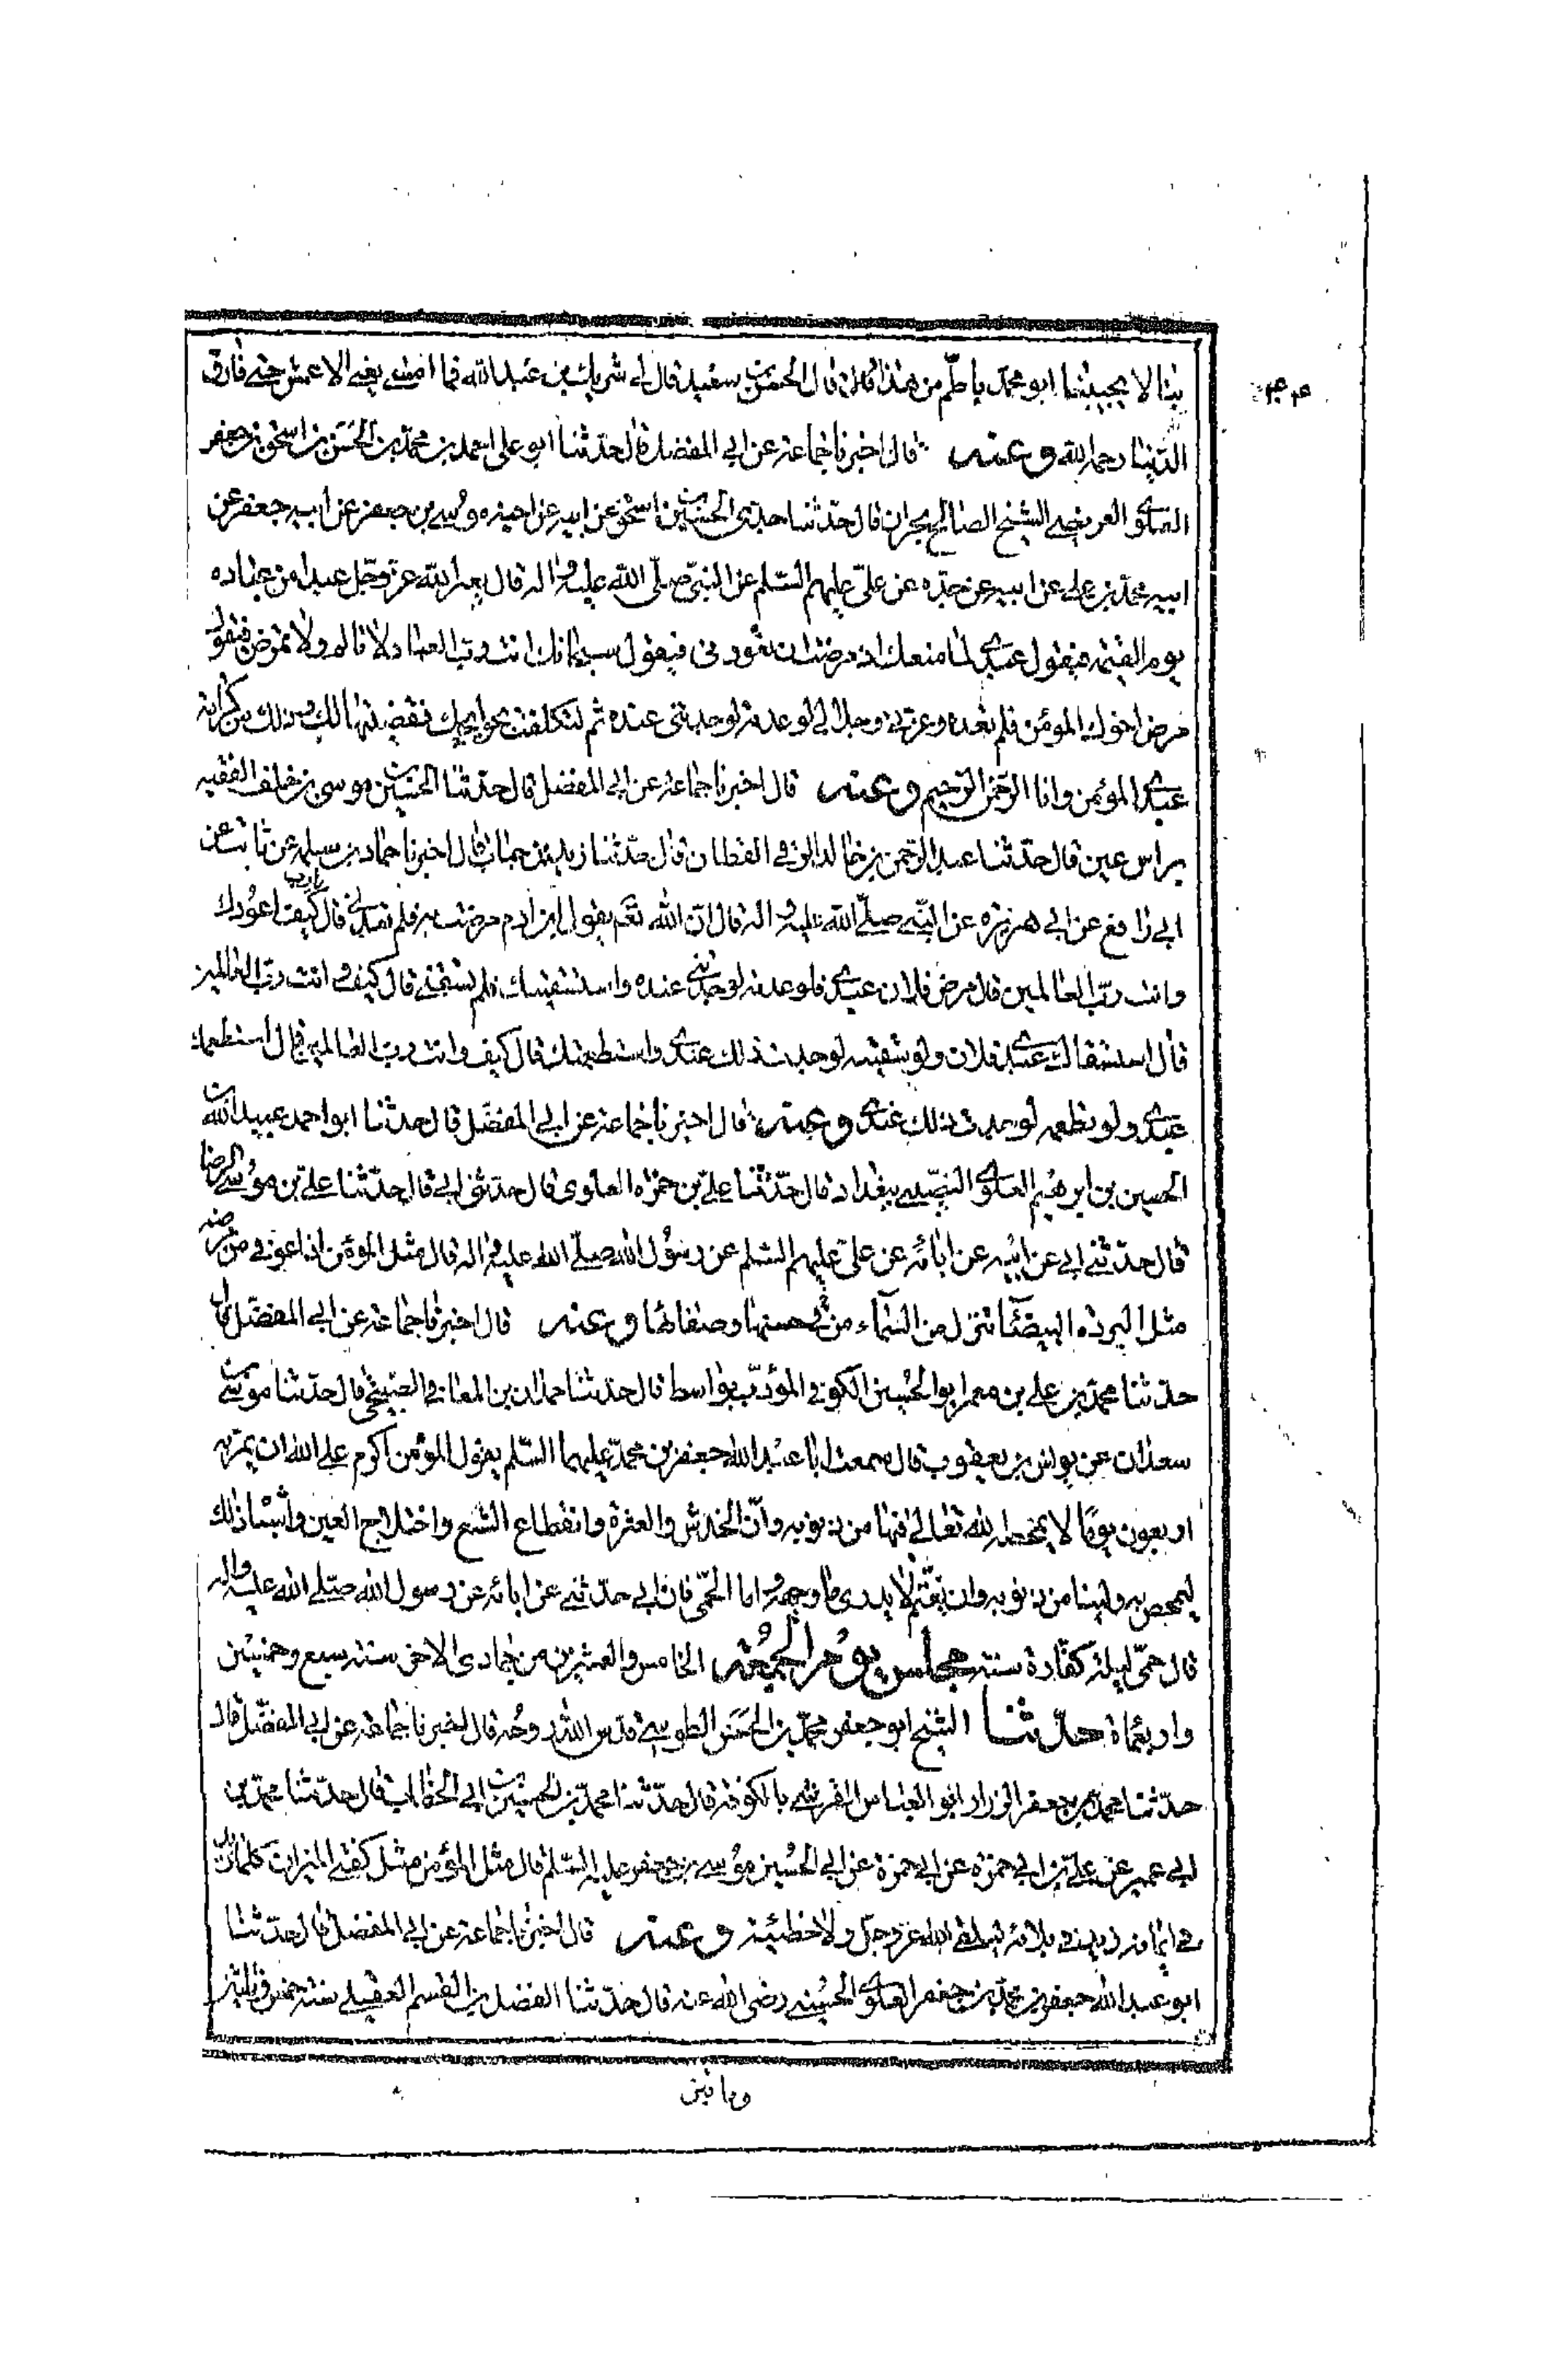 بنا لا يجيبنا ابو محمد باطم من هذا قال قال الحسن بن سعيد قال لي شريك بن عبد الله فما امسى يعني الاعمش حتى فارق
الدنيا رحمه الله وعنه قال اخبرنا جماعة عن ابي المفضل قال حدثنا ابو علي احمد بن محمد بن الحسن بن اسحق بن جعفر
العلوي العريضي الشيخ الصالح بحران قال حدثنا جدي الحسين بن اسحق عن ابيه عن اخيه موسى بن جعفر عن ابيه جعفر عن
ابيه محمد بن علي عن ابيه عن جده عن علي عليهم السلم عن النبي صلى الله عليه واله قال يعير الله عز وجل عبدا من عباده
يوم القيمة فيقول عبدي ما منعك اذ مرضت ان تعودني فيقول سبحانك انت رب العباد لا تالم ولا تمرض فيقول
مرض اخوك المؤمن فلم تعده وعزتي وجلالي لو عدته لوجدتني عنده ثم لتكلفت بحوايجك فقضيتها لك وذلك من كرامة
عبدي المؤمن وانا الرحمن الرحيم وعنه قال اخبرنا جماعة عن ابي المفضل قال حدثنا الحسين بن موسى بن خلف الفقيه
براس عين قال حدثنا عبد الرحمن بن خالد الرقي القطان قال حدثنا زيد بن حباب قال اخبرنا حماد بن سلمة عن ثابت عن
ابي رافع عن ابي هريرة عن النبي صلى الله عليه واله قال ان الله تعم يقول ابن ادم مرضت فلم تعدني قال يا رب كيف اعودك
وانت رب العالمين قال مرض فلان عبدي فلو عدته لوجدتني عنده واستسقيتك فلم تسقني قال كيف وانت رب العالمين
قال استسقاك عبدي فلان ولو سقيته لوجدت ذلك عندي واستطعمتك قال كيف وانت رب العالمين قال استطعمك
عبدي ولو تطعمه لوجدت ذلك عندي وعنه قال اخبرنا جماعة عن ابي المفضل قال حدثنا ابو احمد عبيد الله بن
الحسين بن ابرهيم العلوي النصيبي ببغداد قال حدثنا علي بن حمزه العلوي قال حدثني ابي قال حدثنا علي بن موسى الرضا
قال حدثني ابي عن ابيه عن ابائه عن علي عليهم السلم عن رسول الله صلى الله عليه واله قال مثل المؤمن اذا عوفي من مرضه
مثل البردة البيضاء تنزل من السماء في حسنها وصفائها وعنه قال اخبرنا جماعة عن ابي المفضل قال
حدثنا محمد بن علي بن معمر ابو الحسين الكوفي المؤدب بواسط قال حدثنا حمدان بن المعافي الصبيحي قال حدثنا موسى بن
سعدان عن يونس بن يعقوب قال سمعت ابا عبد الله جعفر بن محمد عليهما السلم يقول المؤمن اكرم على الله ان يمر به
اربعون يوما لا يمحصه الله تعالى فيها من ذنوبه وان الخدش والعثرة وانقطاع الشسع واختلاج العين واشباه ذلك
ليمحص به ولينا من ذنوبه وان يغتم لا يدري ما وجهه واما الحمى فان ابي حدثني عن ابائه عن رسول الله صلى الله عليه واله
قال حمى ليلة كفارة سنة مجلس يوم الجمعة الخامس والعشرين من جمادى الاخرى سنة سبع وخمسين
واربعماة حدثنا الشيخ ابو جعفر محمد بن الحسن الطوسي قدس الله روحه قال اخبرنا جماعة عن ابي المفضل قال
حدثنا محمد بن جعفر الرزاز ابو العباس القرشي بالكوفة قال حدثنا محمد بن الحسين بن ابي الخطاب قال حدثنا محمد بن
ابي عمير عن علي بن ابي حمزه عن ابي حمزة عن ابي الحسين موسى بن جعفر عليه السلم قال مثل المؤمن مثل كفتي الميزان كلما زيد
في ايمانه زيد في بلائه ليلقى الله عز وجل ولا خطيئة وعنه قال اخبرنا جماعة عن ابي المفضل قال حدثنا
ابو عبد الله جعفر بن محمد بن جعفر العلوي الحسيني رضي الله عنه قال حدثنا الفضل بن القسم العقيلي سنة خمس وثلثين
ومائتين